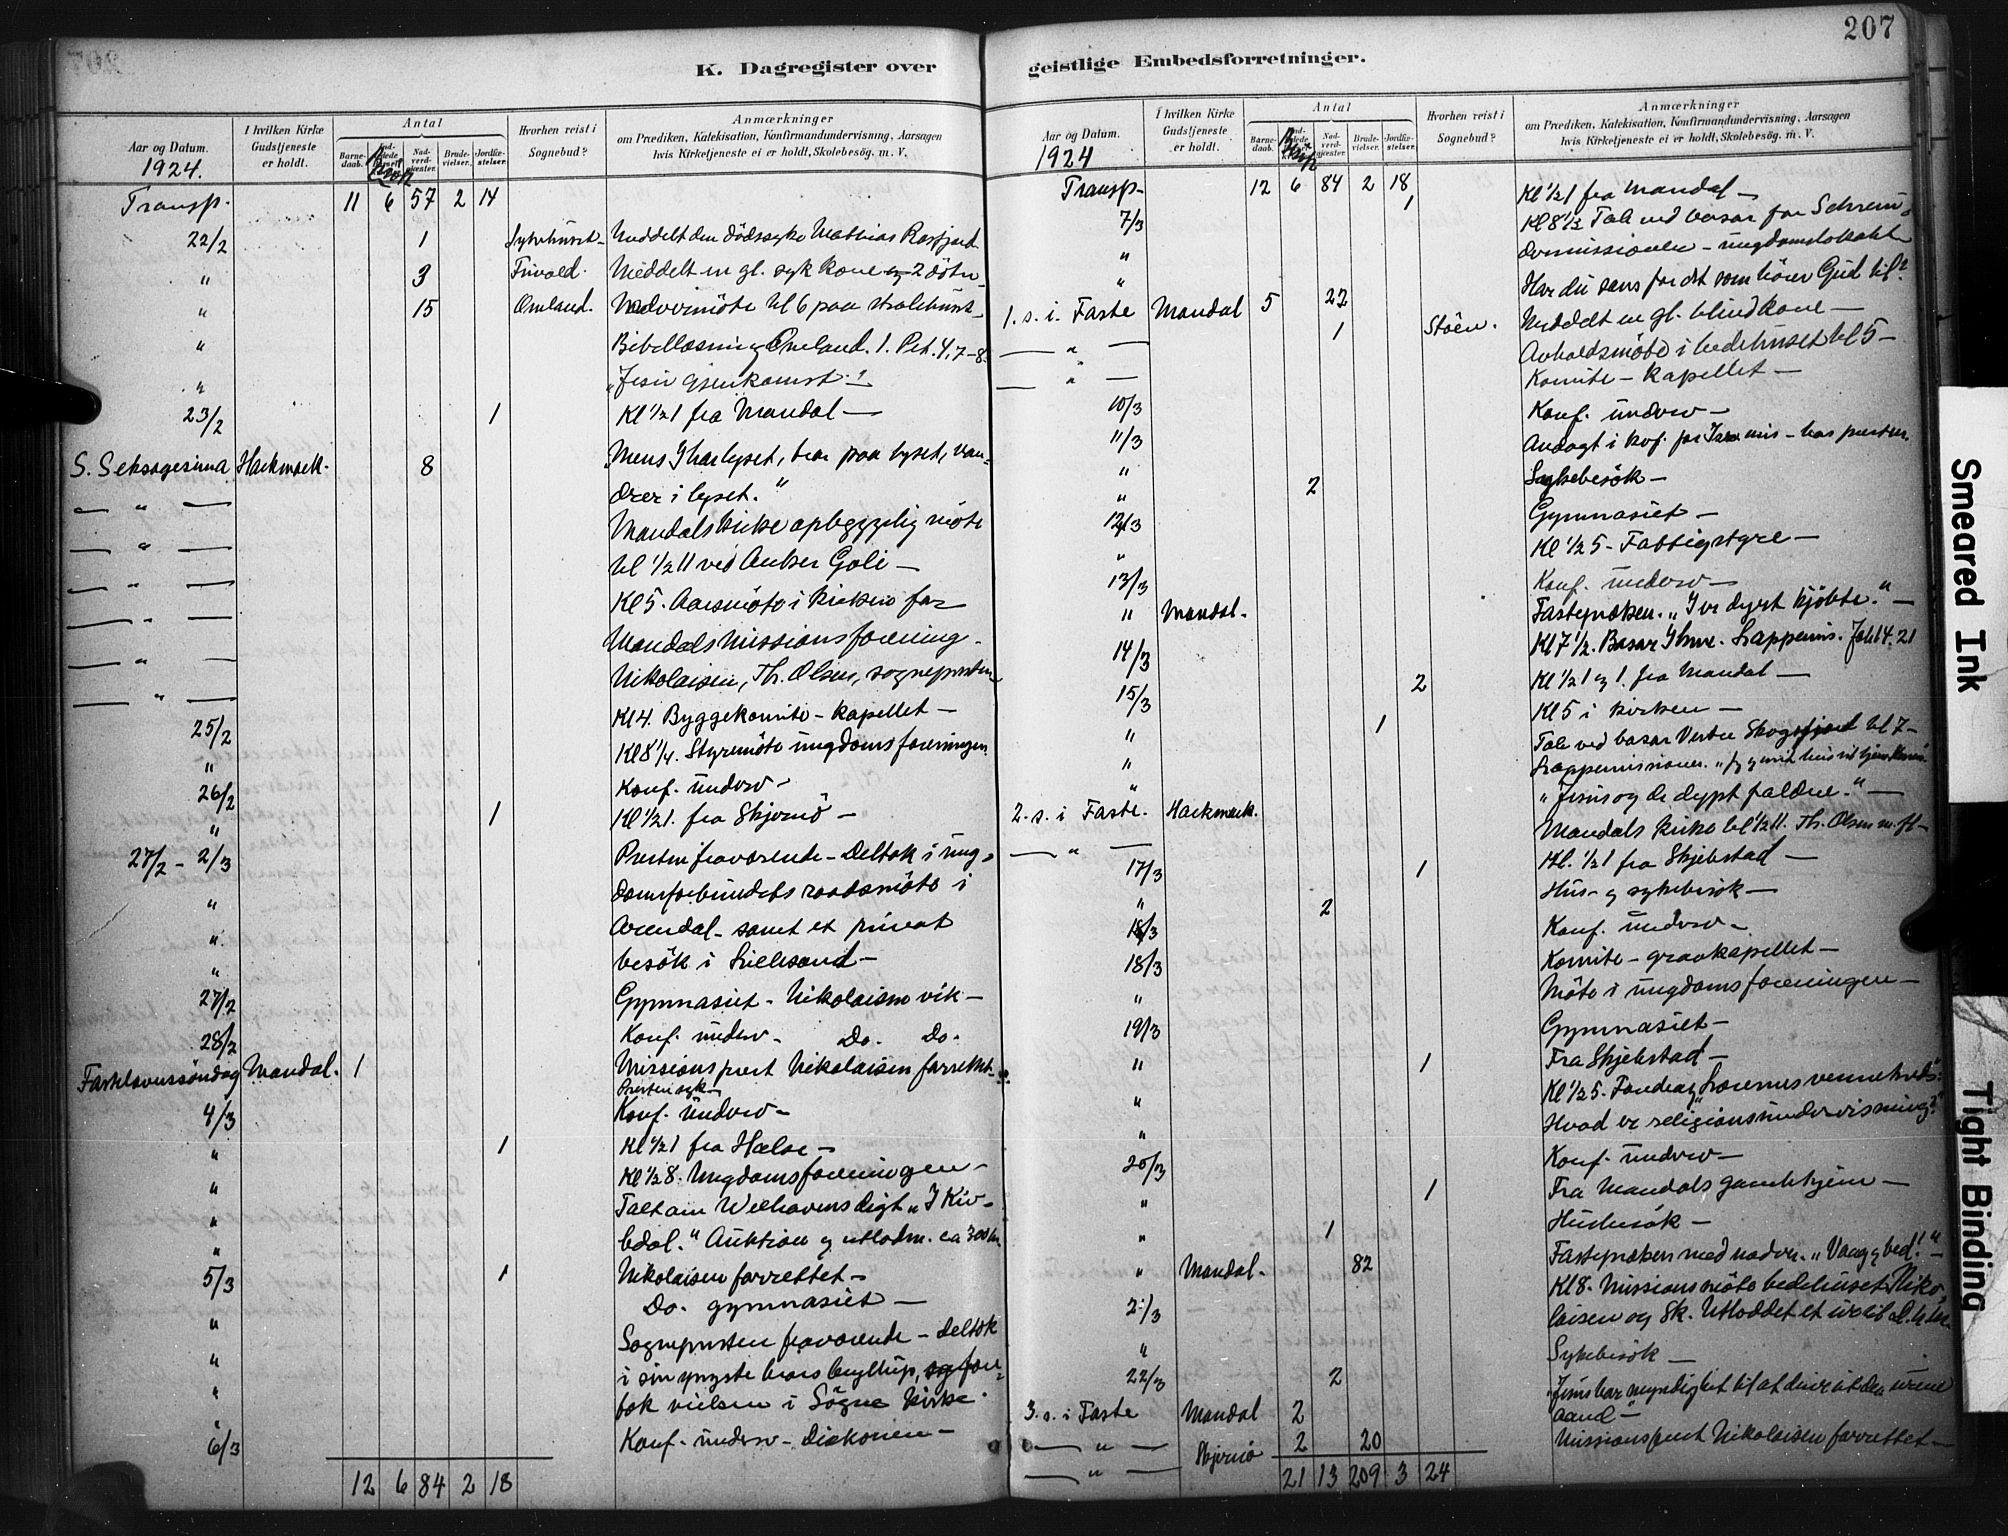 207
K. Dagregister over
geistlige Embedsforretninger.
Aar og Datum. 1924.
I hvilken Kirke Gudstjeneste er holdt.
Antal
Barnedaab.
Nadverdgjester.
Brudevielser.
Jordfæstelser.
Hvorhen reist i Sognebud?
Anmærkninger
om Prædiken, Katekisation, Konfirmandundervisning, Aarsagen
hvis Kirketjeneste ei er holdt, Skolebesøg. m. V.
Transp. 11 6 57 2 14
22/2 1 Sykehuset- Meddelt den dödssyke Mathias Rosfjord
" 3 Frivold. Meddelt en gl. syk kone og 2 døtre
" 15 Omland. Nadvermöte kl 6 paa skolehuset
" Bibellæsning Omland. 1. Pet. 4, 7-8.
" "Jesu gjenkomst."
23/2 1 Kl 1/2 1 fra Mandal -
S. Seksagesima Hackmark- 8 "Mens I har lyset, tro paa lyset, van-
— " — drer i lyset."
— " — Mandals kirke opbyggelig möte
— " — kl 1/2 11 ved Goli -
— " — Kl 5. Aarsmöte i kirken for
— " — Mandals missionsforening -
— " — Nikolaisen, Th. Olsen, sognepresten
25/2 Kl 4. Byggekomite - kapellet -
" Kl 8 1/4. Styremöte ungdomsforeningen.
26/2 Konf. underv -
" 1 Kl 1/2 1. fra Skjernö -
27/2 - 2/3 Presten fraværende - Deltok i ung-
" domsforbundets raadsmöte i
" Arendal - samt et privat
" besök i Lillesand -
27/2 Gymnasiet - Nikolaisen vik -
28/2 Konf. underv - Do. Do.
Fastelavnssöndag Mandal. 1 Missionsprest Nikolaisen forrettet -
Presten syk -
4/3 Konf. underv -
" 1 Kl 1/2 1 fra Halse -
" Kl 1/2 8. Ungdomsforeningen -
" Talt om Welhavens digt "I Kiv-
" dal." Auktion og utlodn. ca 300 kr.
5/3 1 Nikolaisen forrettet -
" Do. gymnasiet -
" Sognepresten fraværende - deltok
" i sin yngste brors bryllup, og for-
" tok vielsen i Sögne kirke.
6/3 Konf. underv - Diakonien -
12 6 84 2 18
Aar og Datum. 1924
I hvilken Kirke Gudstjeneste er holdt.
Antal
Barnedaab.
Nadverdgjester.
Brudevielser.
Jordfæstelser.
Hvorhen reist i Sognebud?
Anmærkninger
om Prædiken, Katekisation, Konfirmandundervisning, Aarsagen
hvis Kirketjeneste ei er holdt, Skolebesøg. m. V.
Transp- 12 6 84 2 18
7/3 1 Kl 1/2 1 fra Mandal -
" Kl 8 1/2 Tale ved basar for
" - ungdomslokalet
Har du sans for det som hörer Gud til?
1. s. i. Faste Mandal 5 22
— " — 1 Stöen. Meddelt en gl. blind kone -
— " — Avholdsmöte i bedehuset kl 5 -
10/3 Komite - kapellet -
11/3 Konf. underv -
" Andagt i for - hos presten.
" 2 Sykebesök -
12/3 Gymnasiet -
" Kl 1/2 5 - Fattigstyre -
13/3 Konf. underv -
" Mandal. Fastepræken. "I er dyrt kjöbte." -
14/3 Kl 7 1/2. Basar Lappemis. Joh 14. 21
15/3 2 Kl 1/2 1 og 1. fra Mandal -
" 1 Kl 5 i kirken -
" Tale ved basar Vestre Skogsfjord kl 7 -
" Lappemissionen.
2. s. i Faste. Hackmark. "Jesus og de dypt faldne." -
— " — Mandals kirke kl 1/2 11. Th. Olsen m. fl -
17/3 1 Kl. 1/2 1 fra Skjebstad -
" 2 Hus- og sykebesök -
18/3 Konf. underv -
18/3 Komite - gravkapellet -
" Möte i ungdomsforeningen -
19/3 Gymnasiet -
" 1 Fra Skjebstad -
" Kl 1/2 5. Foredrag
" Hvad er religionsundervisning?"
20/3 Konf. underv -
" 1 Fra Mandals gamlehjem -
" 1 Husbesök -
" Mandal. 82 Fastepræken med nadv. "Vaag og bed!" -
21/3 Kl 8. Missionsmöte bedehuset Niko-
" laisen og Sk. Utloddet et
22/3 2 Sykebesök -
3. s. i Faste Mandal 2 "Jesus har myndighet til at drive ut den urene
aand" -
— " — Skjernö 2 20 Missionsprest Nikolaisen forrettet -
— " — 21 13 209 3 24
Smeared Ink
Tight Binding